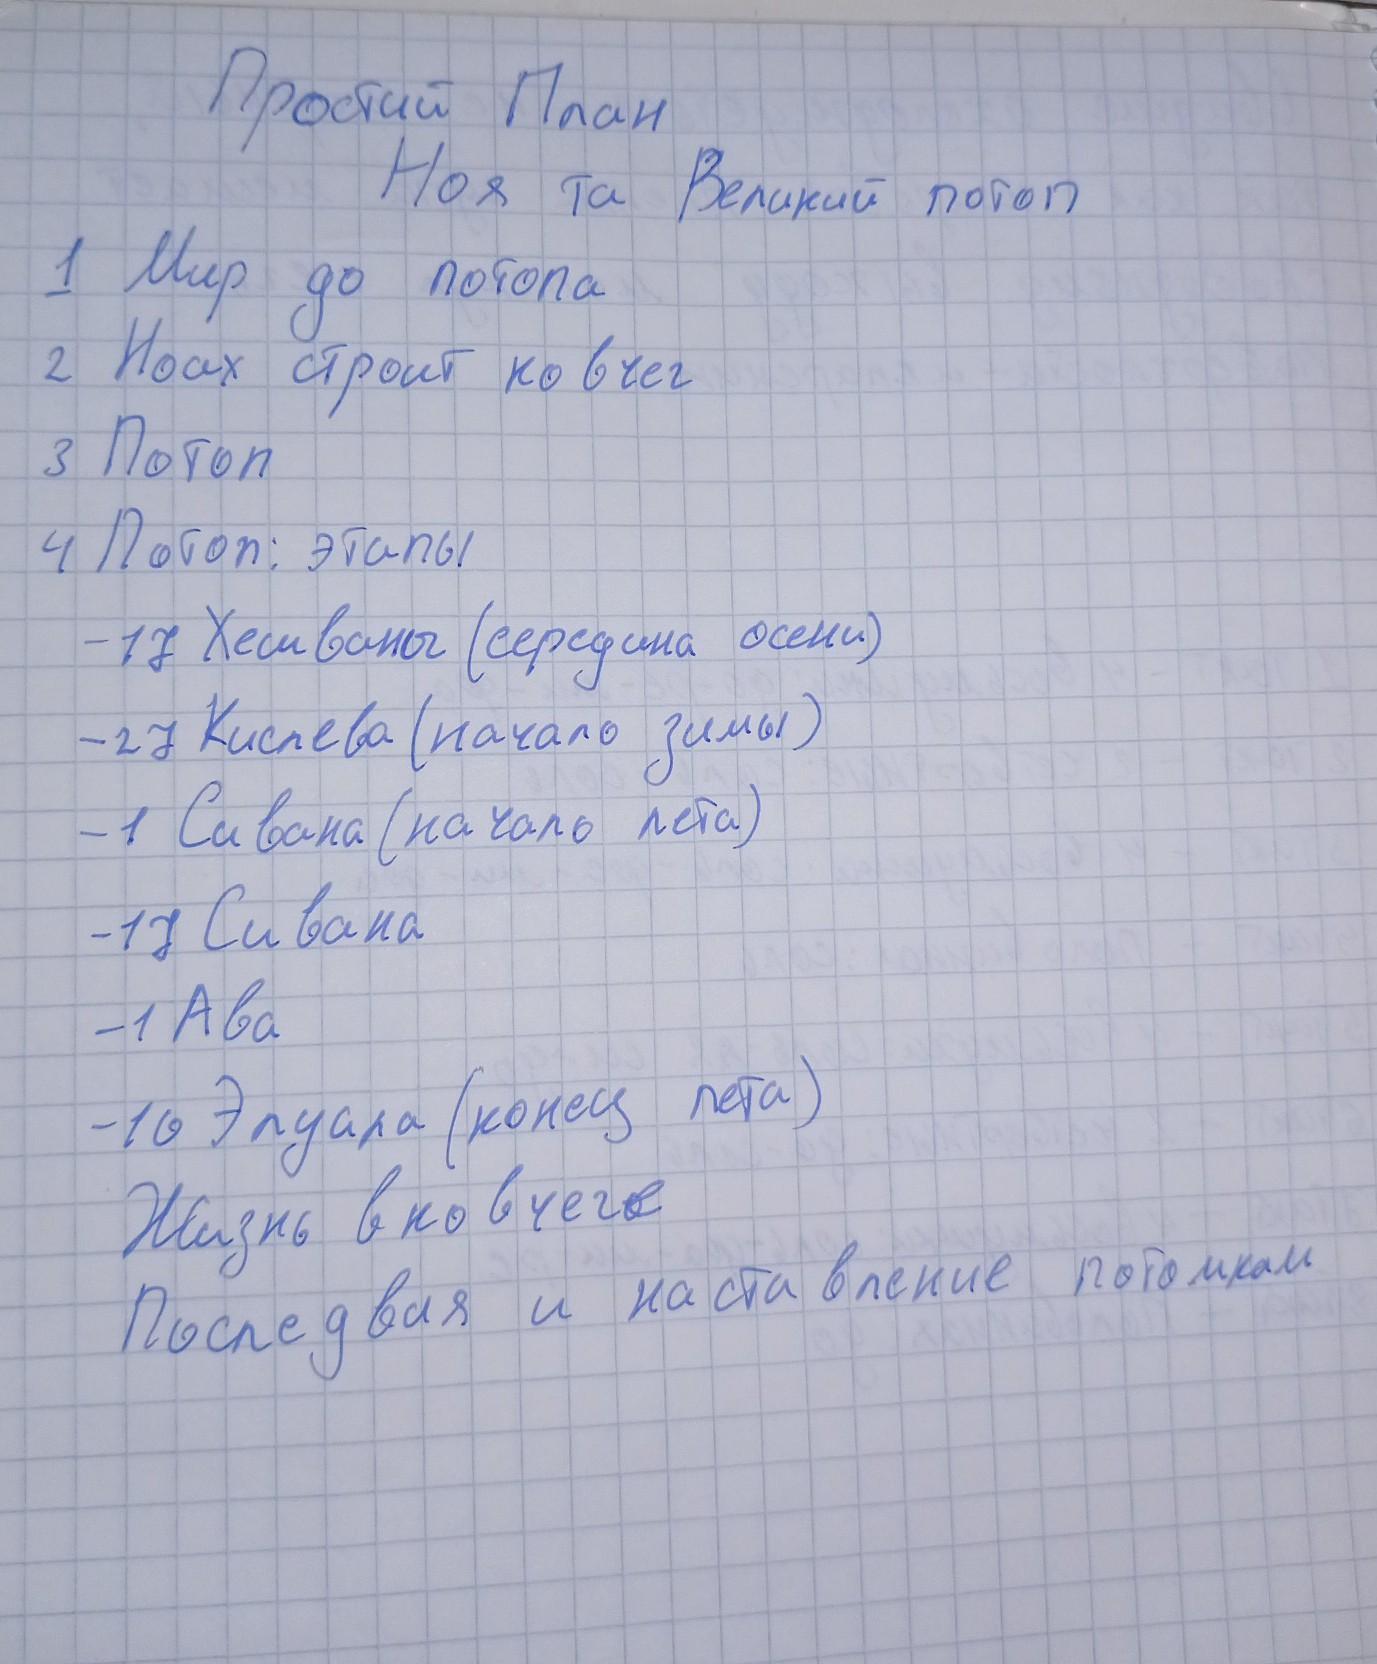 Простий План
Ноя та Великий потоп
1 Мир до потопа
2 Ноах строит ковчег
3 Потоп
4 Потоп: этапы
-17 Хешваны (середина осени)
-27 Кислева (начало зимы)
-1 Сивана (начало лета)
-17 Сивана
-1 Ава
-10 Элуала (конец лета)
Жизнь в ковчеге
Последвия и наставление потомкам